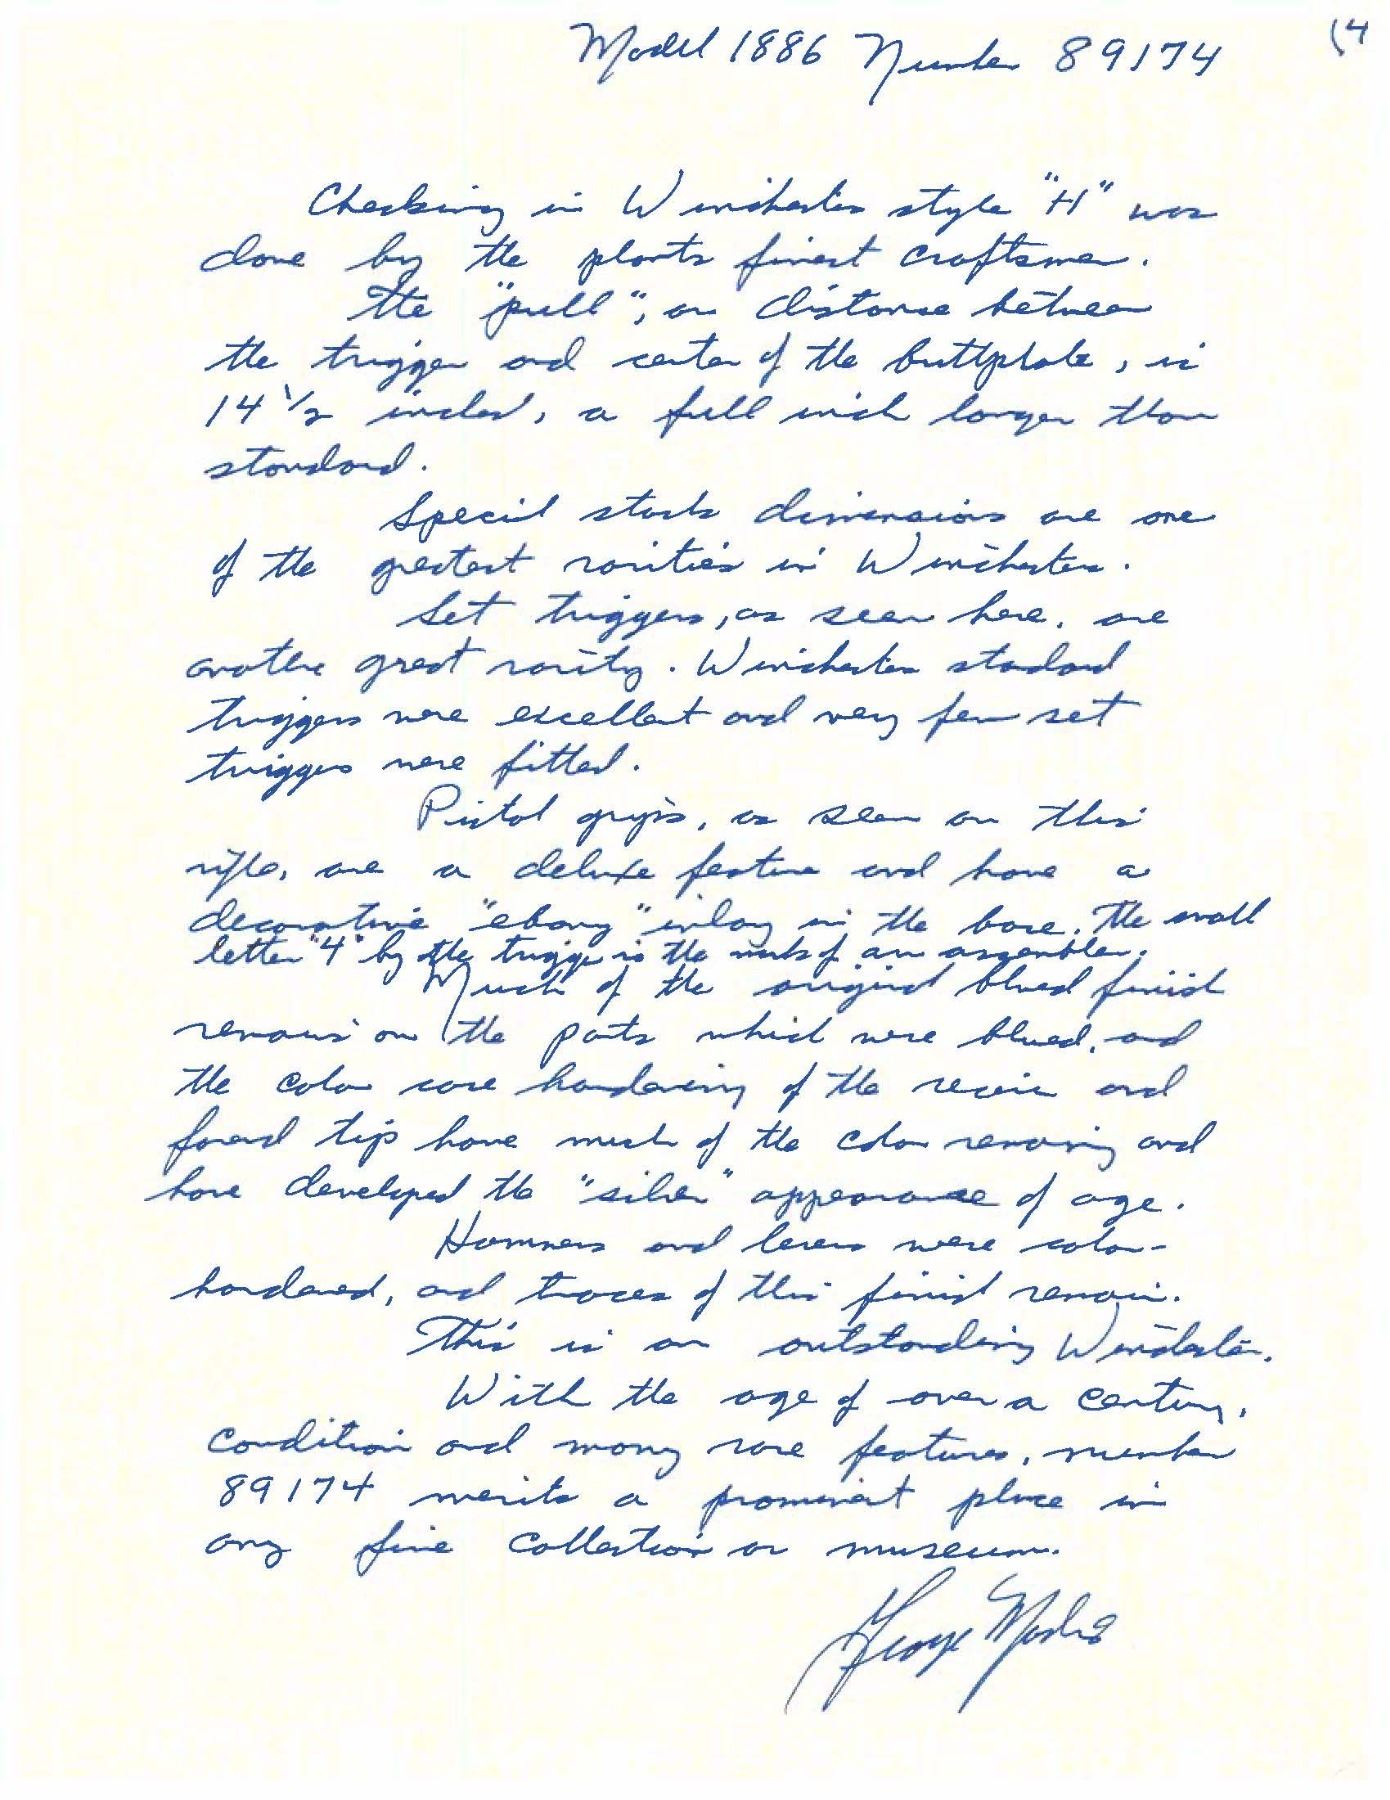 (4
Model 1886 Number 89174
Checking in Winchester style "H" was
done by the plants finest craftsmen.
The "pull", or distance between
the trigger and center of the buttplate, is
14 1/2 inches, a full inch longer than
standard.
Special stock dimensions are one
of the greatest rarities in Winchesters.
Set triggers, as seen here, are
another great rarity. Winchester standard
triggers were excellent and very few set
triggers were fitted.
Pistol grips, as seen on this
rifle, are a deluxe feature and have a
decorative "ebony" inlay in the base. The small
letter "4" by the trigger is the mark of an assembler.
Much of the original blued finish
remains on the parts which were blued, and
the color case hardening of the receiver and
forend tip have much of the color remaining and
have developed the "silver" appearance of age.
Hammers and levers were color-
hardened, and traces of this finish remain.
This is an outstanding Winchester.
With the age of over a century,
condition and many rare features, number
89174 merits a prominent place in
any fine collection or museum.
George Madis